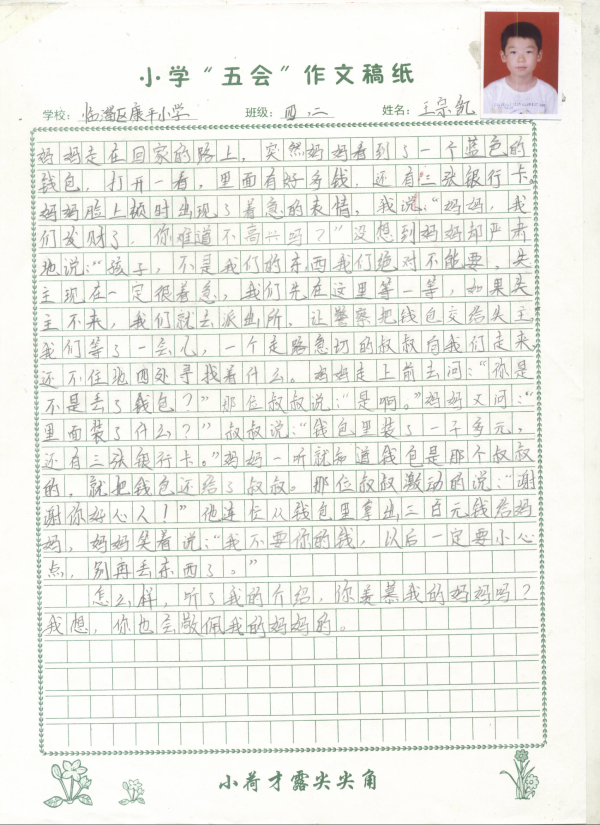 小学“五会”作文稿纸
学校：临淄区康平小学 班级：四.二 姓名：王宗凯
妈妈走在回家的路上，突然妈妈看到了一个蓝色的
钱包，打开一看，里面有好多钱，还有三张银行卡。
妈妈脸上顿时出现了着急的表情，我说：“妈妈，我
们发财了，你难道不高兴吗？”没想到妈妈却严肃
地说：“孩子，不是我们的东西我们绝对不能要，失
主现在一定很着急，我们先在这里等一等，如果失
主不来，我们就去派出所，让警察把钱包交给失主
我们等了一会儿，一个走路急切的叔叔向我们走来
还不住地四处寻找着什么。妈妈走上前去问：“你是
不是丢了钱包？”那位叔叔说：“是啊。”妈妈又问：“
里面装了什么？”叔叔说：“钱包里装了一千多元，
还有三张银行卡。”妈妈一听就知道钱包是那个叔叔
的，就把钱包还给了叔叔。那位叔叔激动的说：“谢
谢你好心人！”他连忙从钱包里拿出三百元钱给妈
妈，妈妈笑着说：“我不要你的钱，以后一定要小心
点，别再丢东西了。”
怎么样，听了我的介绍，你羡慕我的妈妈吗？
我想，你也会敬佩我的妈妈的。
小荷才露尖尖角